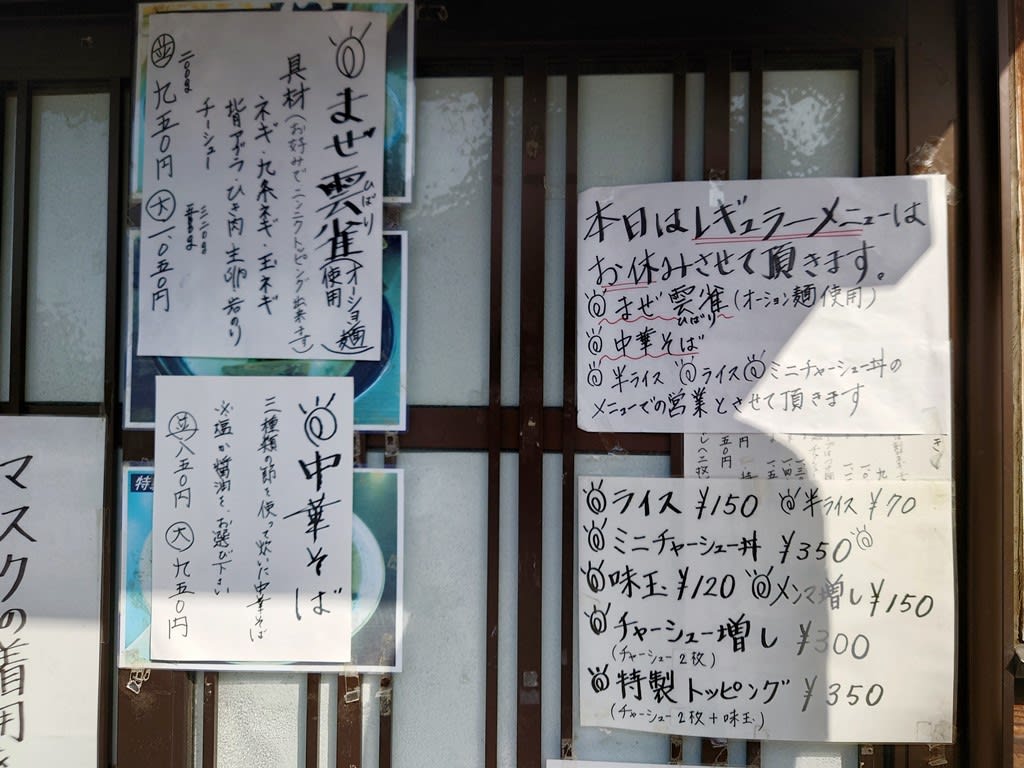 まぜ雲雀(オーション麺使用)
ひばり
具材(お好みでニンニクトッピング出来ます)
ネギ・九条ネギ・玉ネギ
背アブラ ひき肉 生卵 岩のり
チーシュー
並 九五〇円 大 一、〇五〇円
中華そば
三種類の節を使って炊いた中華そば
※塩か醤油を、お選び下さい
並 八五〇円 大 九五〇円
マスクの着用
本日はレギュラーメニューは
お休みさせて頂きます。
まぜ雲雀(オーション麺使用)
ひばり
中華そば
半ライス ライス ミニチャーシュー丼の
メニューでの営業とさせて頂きます
ライス ¥150 半ライス ¥70
ミニチャーシュー丼 ¥350
味玉 ¥120 メンマ増し ¥150
チャーシュー増し ¥300
(チャーシュー2枚)
特製トッピング ¥350
(チャーシュー2枚+味玉)
特